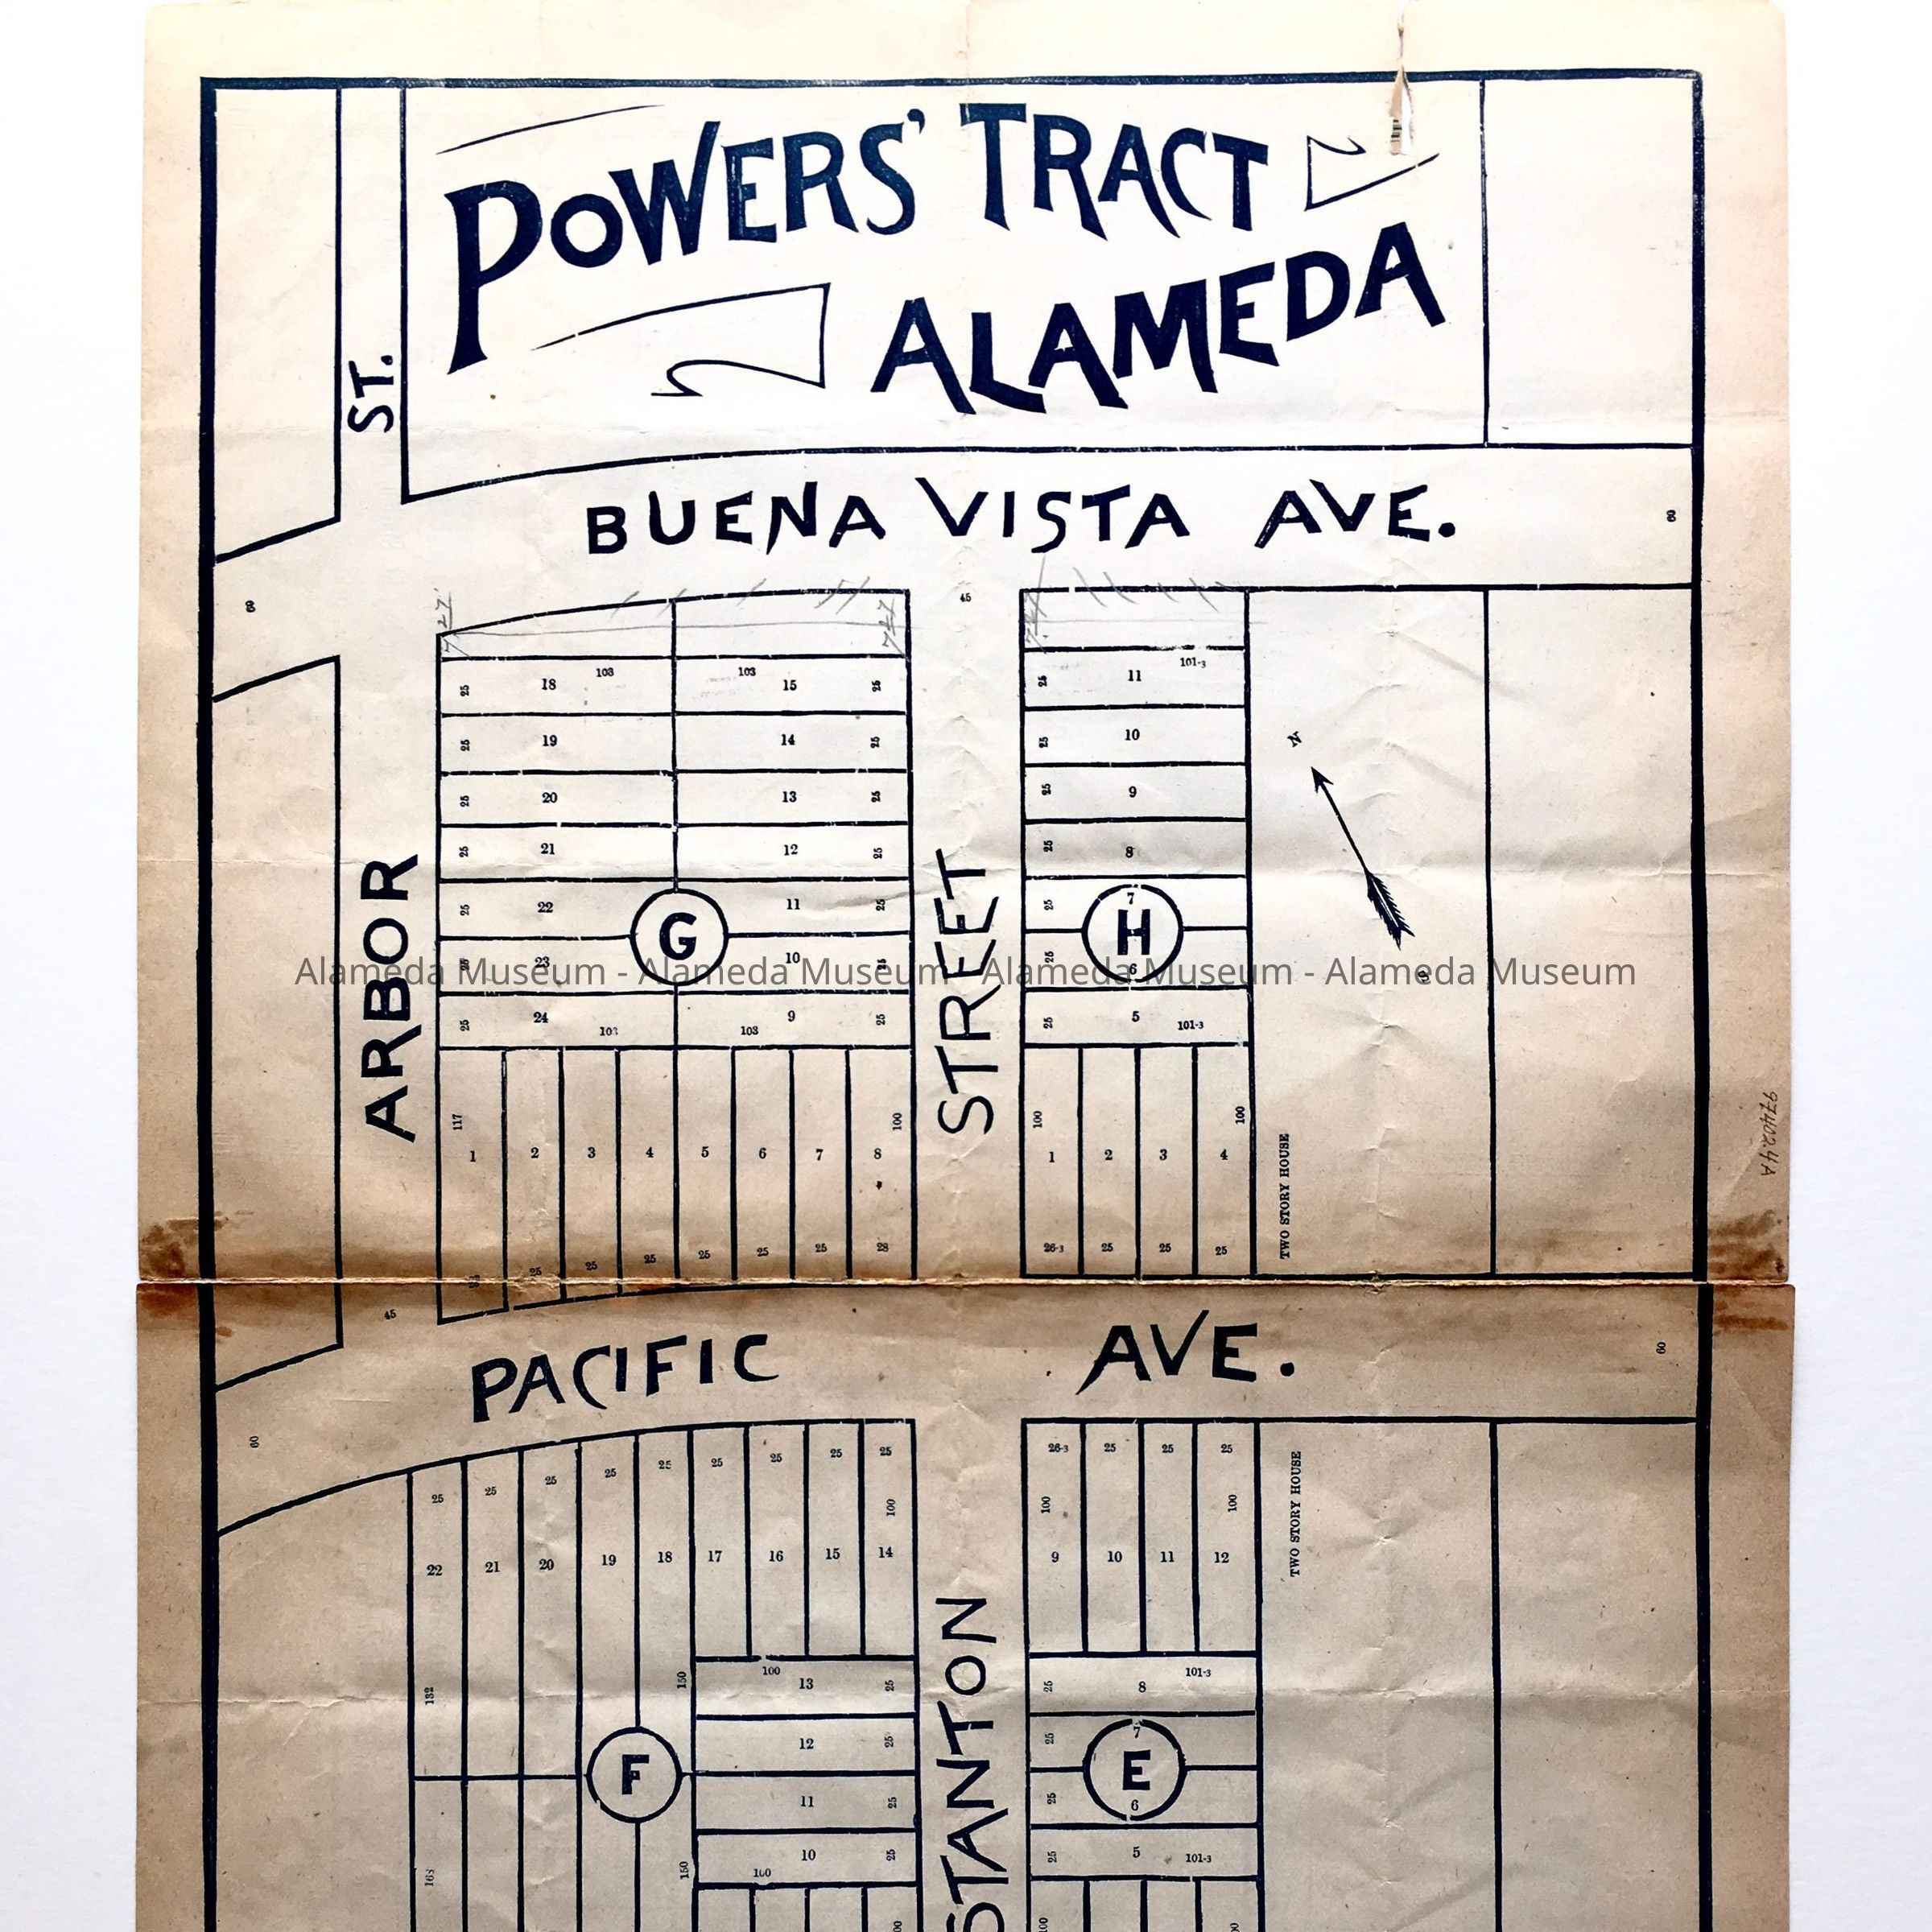 POWERS' TRACT
ALAMEDA
ST.
BUENA VISTA AVE.
60
60
45
727
727
727
103
103
101-3
25
18
15
25
25
11
25
19
14
25
25
10
25
20
13
25
25
9
N
25
21
12
25
25
8
25
22
11
25
25
7
G
H
25
23
10
25
25
6
60
25
24
103
103
9
25
25
5
101-3
ARBOR
STREET
117
100
100
100
1
2
3
4
5
6
7
8
1
2
3
4
25
25
25
25
25
25
28
26-3
25
25
25
TWO STORY HOUSE
97402.4A
45
PACIFIC AVE.
60
60
25
25
25
25
25
25
25
25
25
26-3
25
25
25
100
100
100
22
21
20
19
18
17
16
15
14
9
10
11
12
TWO STORY HOUSE
132
150
100
13
25
25
8
101-3
12
25
25
7
F
E
11
25
25
6
163
150
10
100
25
25
5
101-3
STANTON
100
100
100
Alameda Museum - Alameda Museum - Alameda Museum - Alameda Museum